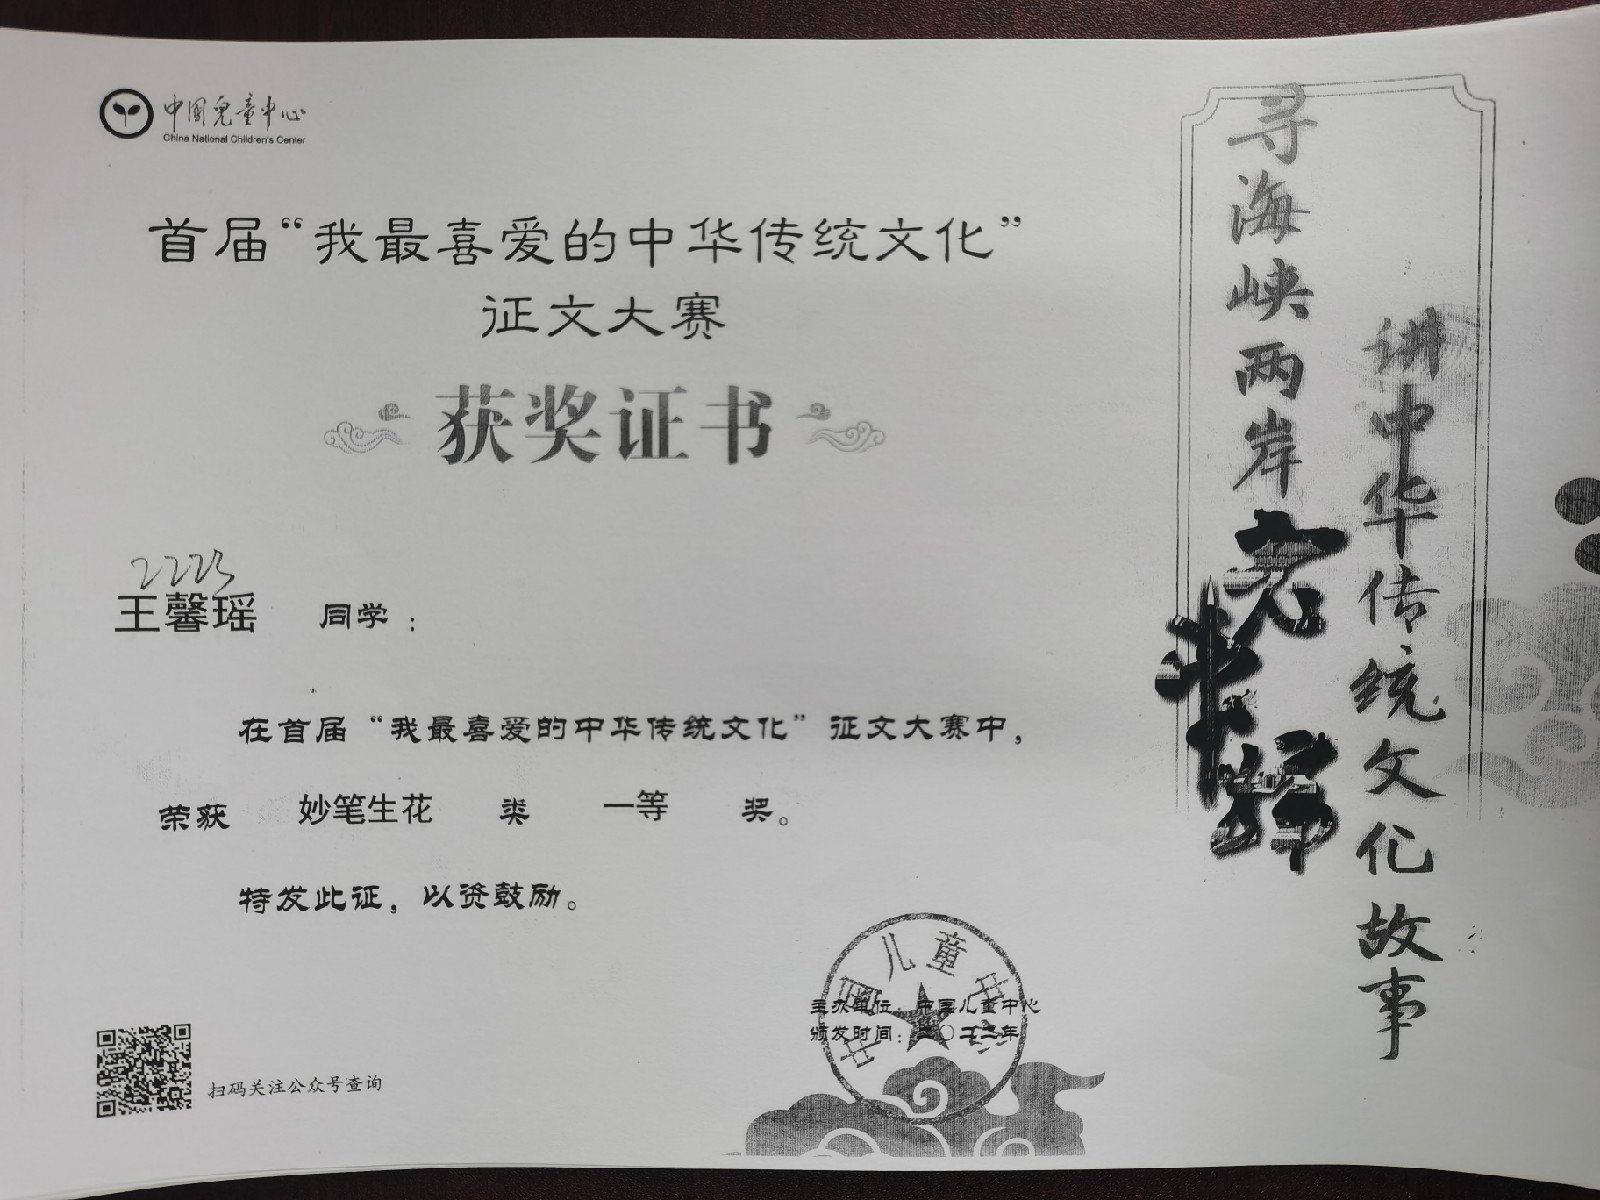 中国儿童中心
China National Children's Center
首届“我最喜爱的中华传统文化”
征文大赛
获奖证书
2223
王馨瑶 同学：
在首届“我最喜爱的中华传统文化”征文大赛中，
荣获 妙笔生花 类 一等 奖。
特发此证，以资鼓励。
主办单位：中国儿童中心
颁发时间：二〇二二年
中国儿童中心
扫码关注公众号查询
寻海峡两岸
讲中华传统文化故事